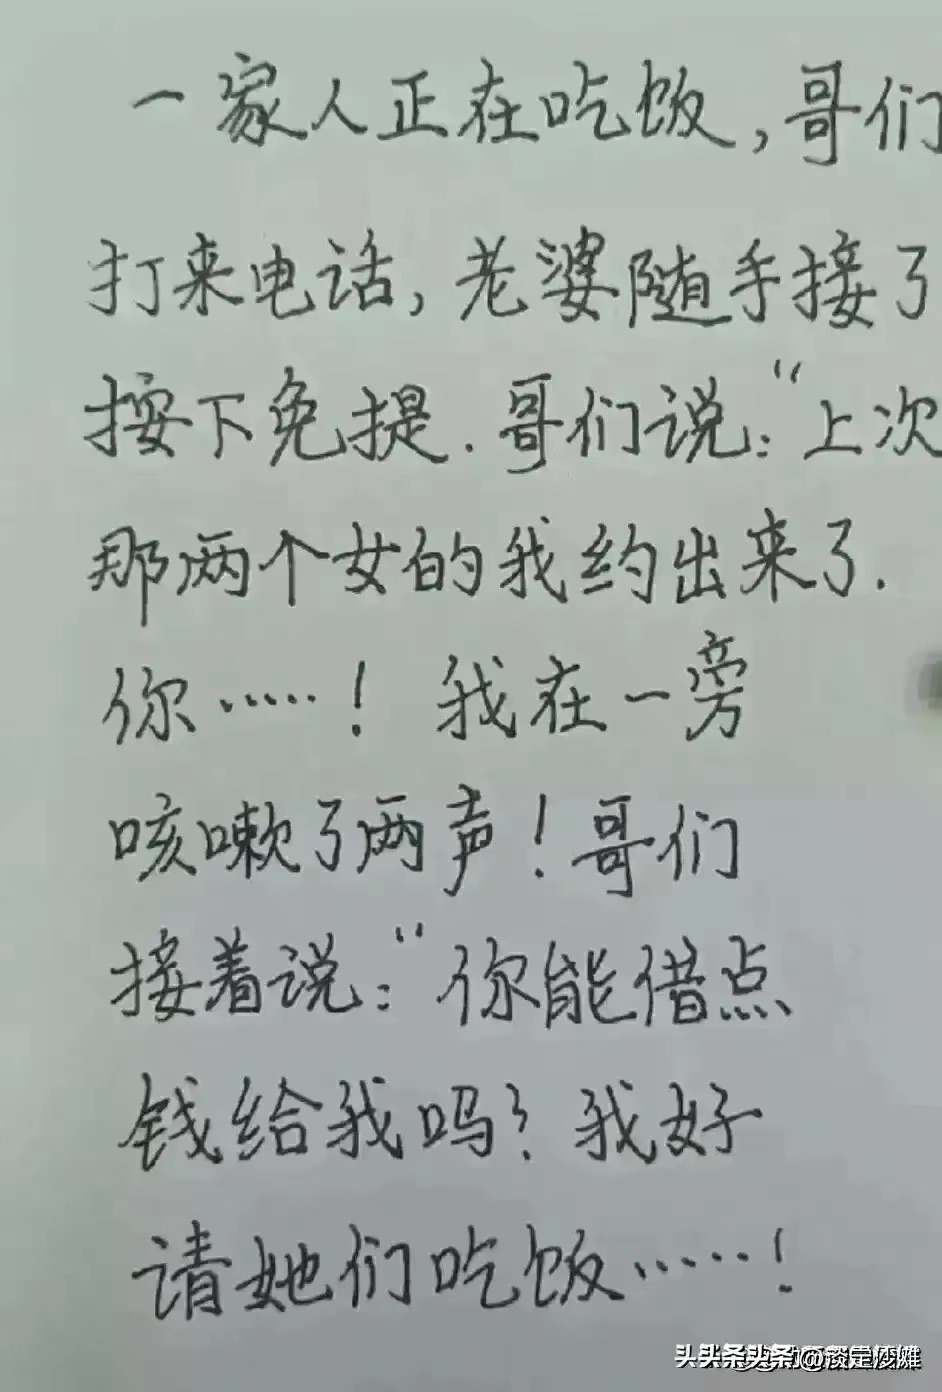 一家人正在吃饭,哥们
打来电话,老婆随手接了
按下免提.哥们说:“上次
那两个女的我约出来了.
你……! 我在一旁
咳嗽了两声!哥们
接着说:“你能借点
钱给我吗?我好
请她们吃饭……!